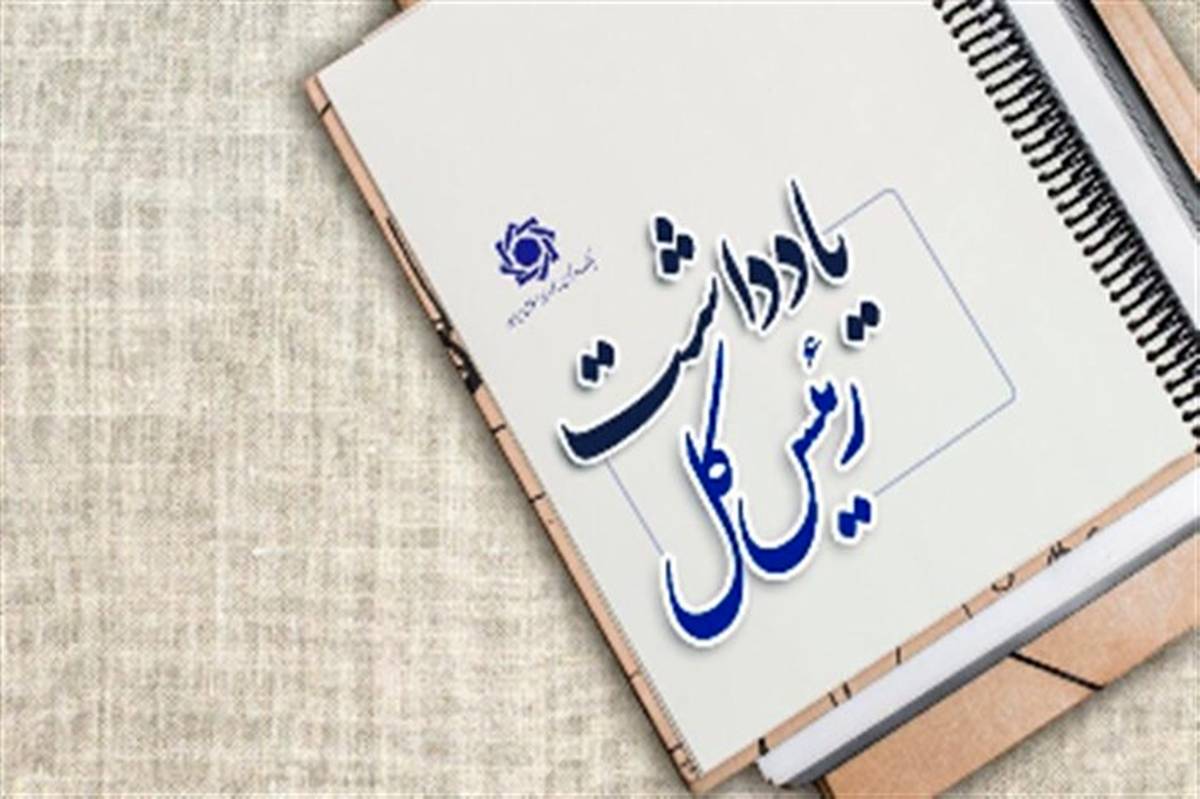 یادداشت
رئیس کل